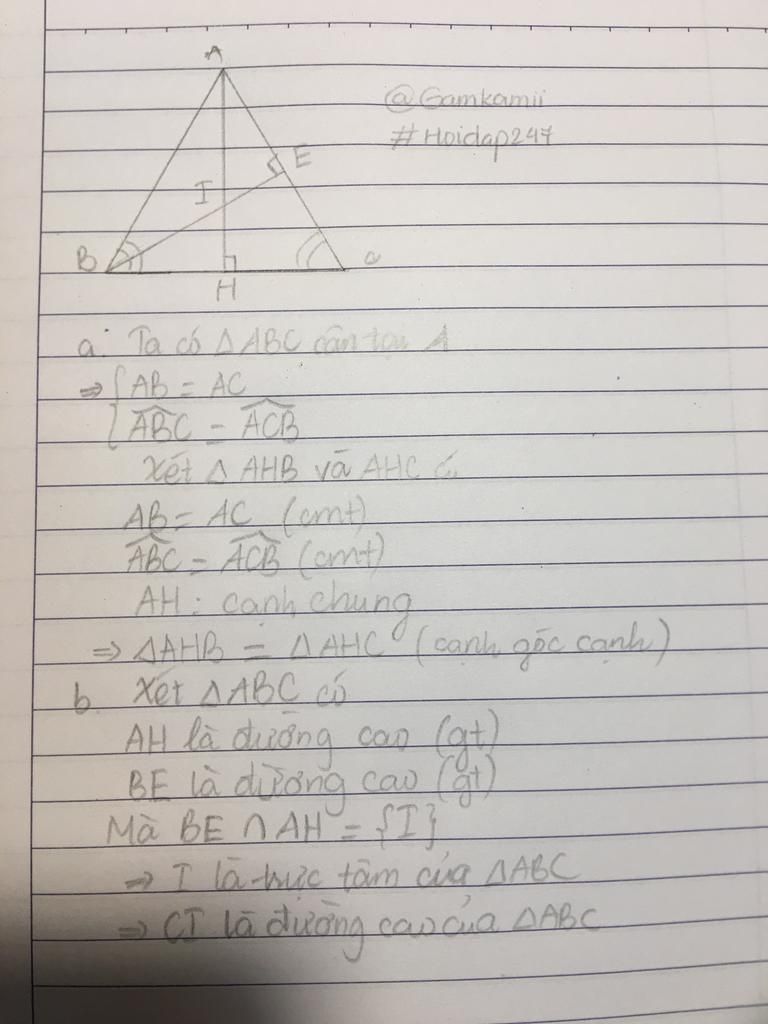 A
@Gamkamii
#Hoidap247
E
I
B
C
H
a. Ta có ΔABC cân tại A
⇒ { AB = AC
{ \widehat{ABC} = \widehat{ACB}
Xét ΔAHB và AHC có
AB = AC (cmt)
\widehat{ABC} = \widehat{ACB} (cmt)
AH : cạnh chung
⇒ ΔAHB = ΔAHC (cạnh góc cạnh)
b. Xét ΔABC có
AH là đường cao (gt)
BE là đường cao (gt)
Mà BE ∩ AH = {I}
⇒ I là trực tâm của ΔABC
⇒ CI là đường cao của ΔABC